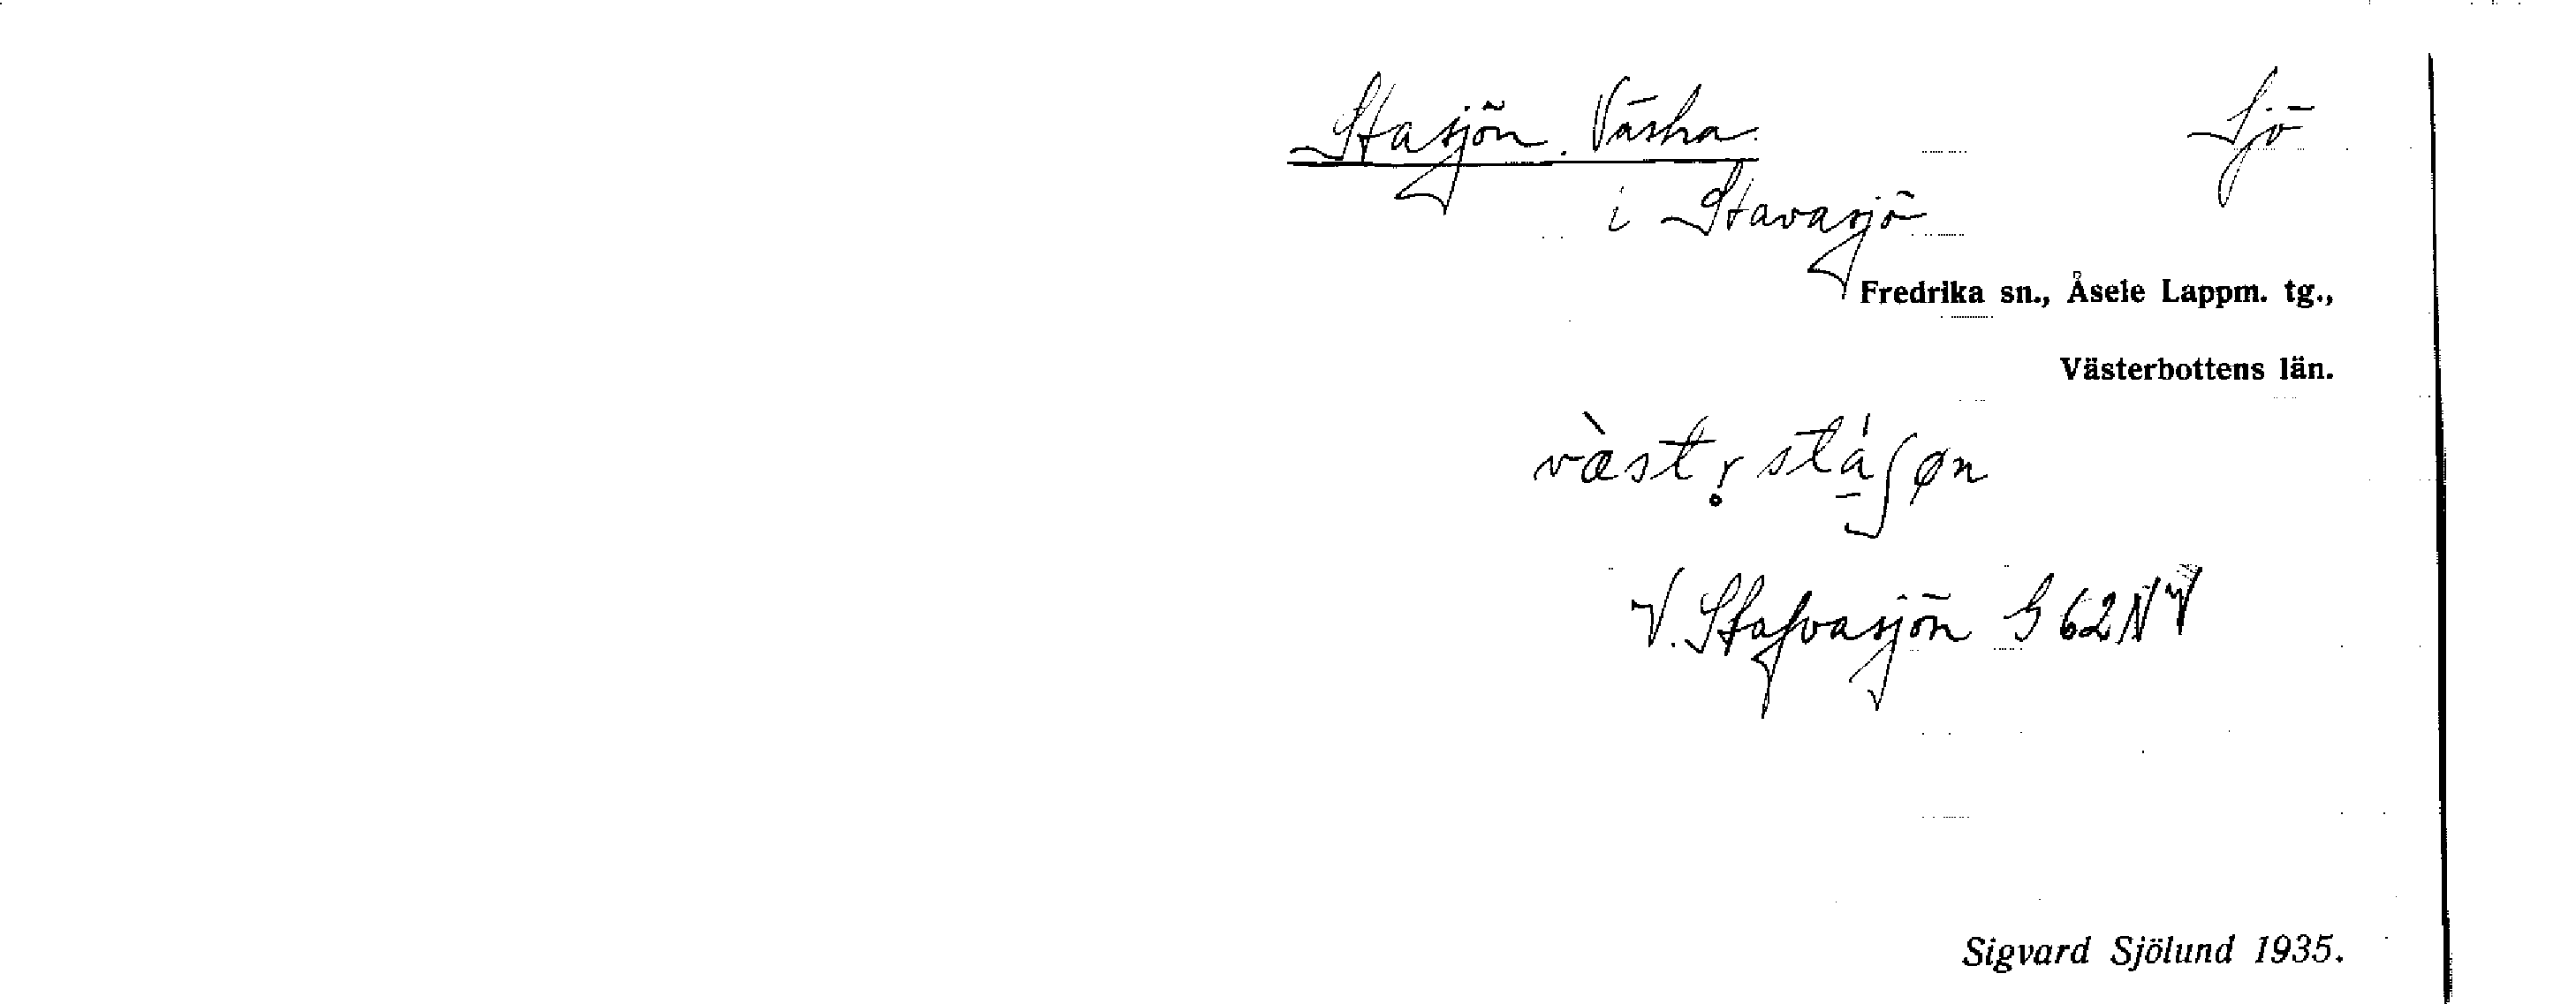 Stasjön. Västra. Sjö
i Stavasjö
Fredrika sn., Åsele Lappm. tg.,
Västerbottens län.
væ̀str̥ stá̠ʃøn
V. Stafvasjön G 62 NV
Sigvard Sjölund 1935.